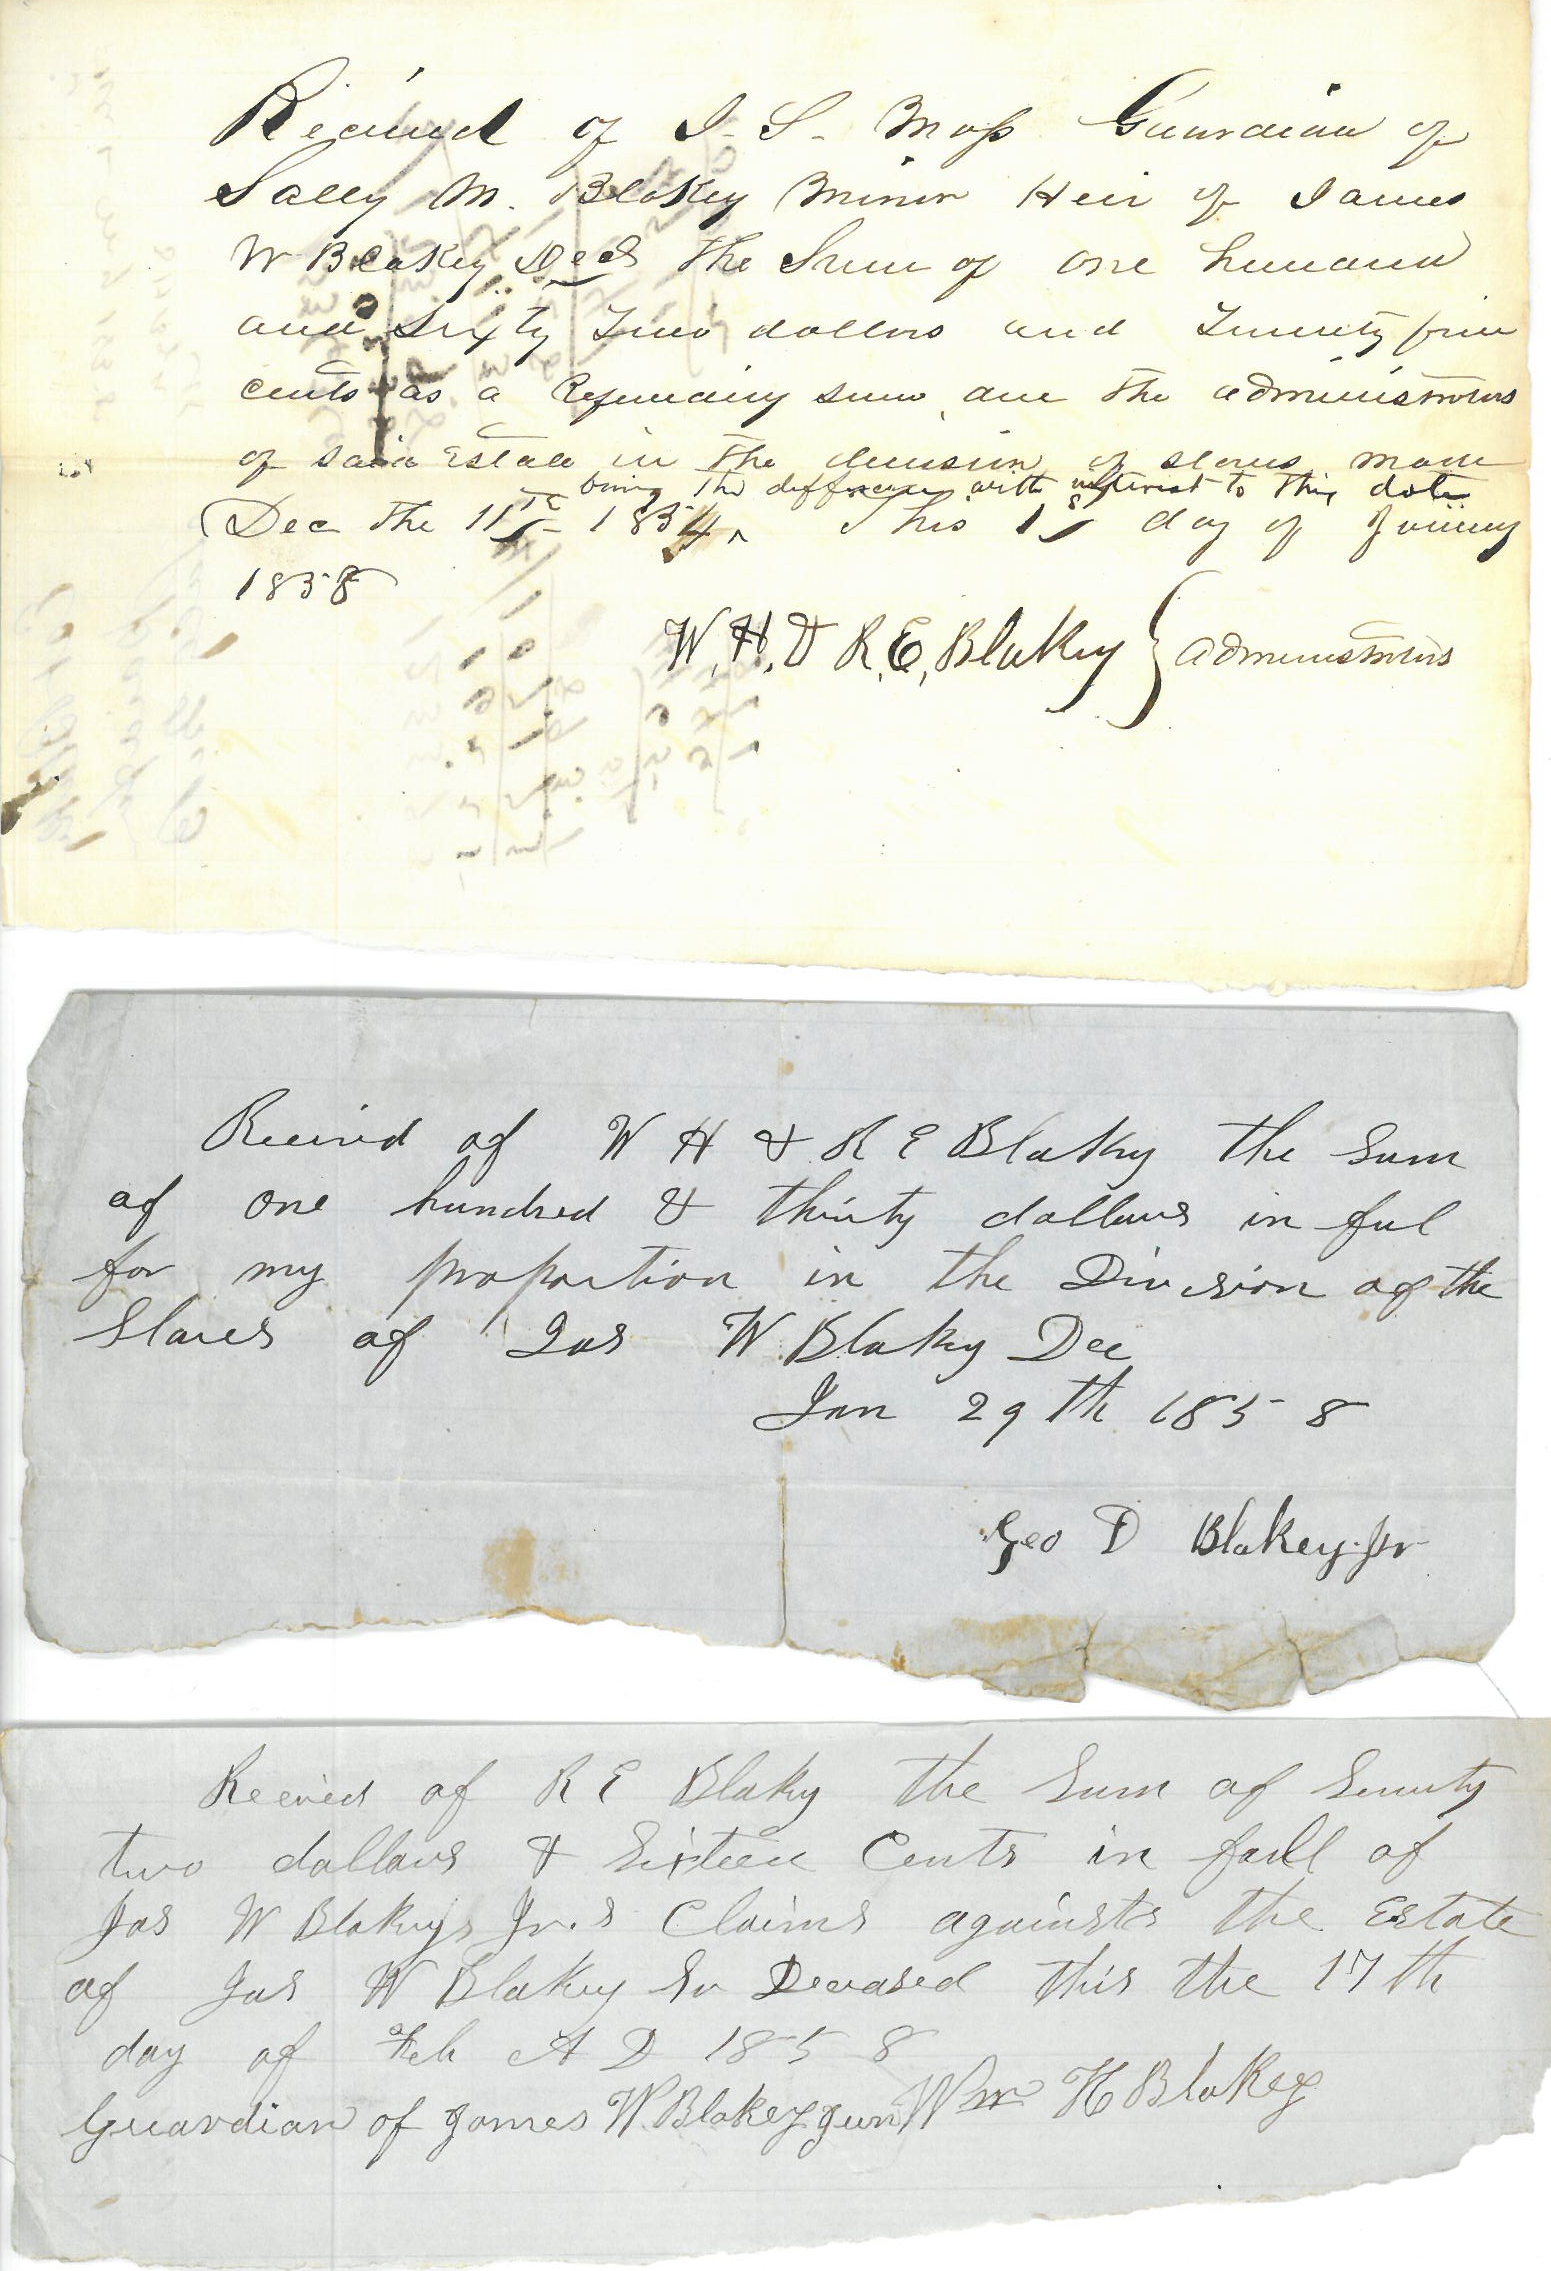 Received of J. S. Moss Guardian of
Sally M. Blakey Minor Heir of James
W Blakey Decd the Sum of one hundred
and Sixty Two dollars and Twenty five
cents as a Refunding sum due the administrators
of said Estate in the division of slaves made
being the difference with interest to this date
Dec the 11th 1854 This 1st day of
1858
W. H. & R. E. Blakey } administrators
Received of W H & R E Blakey the Sum
of one hundred & thirty dollars in ful
for my proportion in the Division of the
Slaves of Jas W Blakey Dec
Jan 29th 1858
Geo D Blakey Jr
Received of R E Blakey the Sum of
two dollars & Sixteen Cents in full of
Jas W Blakeys Jr.s Claims against the Estate
of Jas W Blakey Sr Deceased this the 17th
day of Feb A D 1858
Guardian of James W. Blakey jun Wm H Blakey